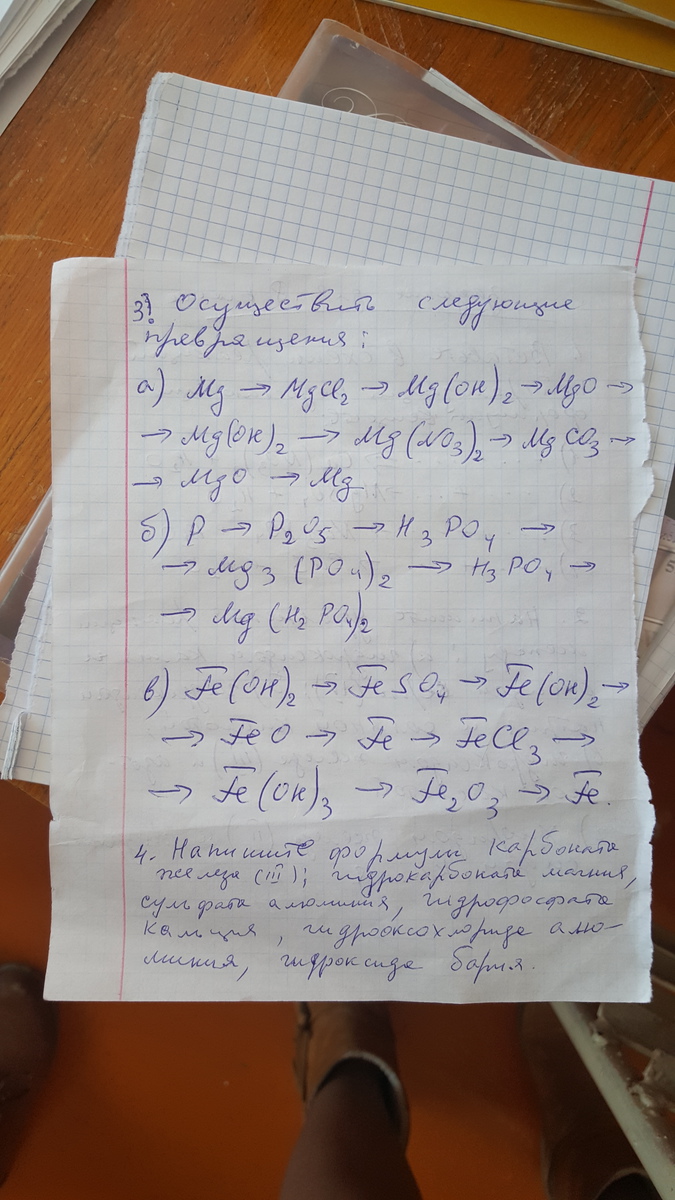 3! Осуществить следующие
превращения:
а) Mg → MgCl₂ → Mg(OH)₂ → MgO →
→ Mg(OH)₂ → Mg(NO₃)₂ → MgCO₃ →
→ MgO → Mg
б) P → P₂O₅ → H₃PO₄ →
→ Mg₃(PO₄)₂ → H₃PO₄ →
→ Mg(H₂PO₄)₂
в) Fe(OH)₂ → FeSO₄ → Fe(OH)₂ →
→ FeO → Fe → FeCl₃ →
→ Fe(OH)₃ → Fe₂O₃ → Fe.
4. Напишите формулы карбоната
железа (III); гидрокарбоната магния,
сульфата алюминия, гидрофосфата
кальция, гидрооксохлорида алю-
миния, гидроксида бария.